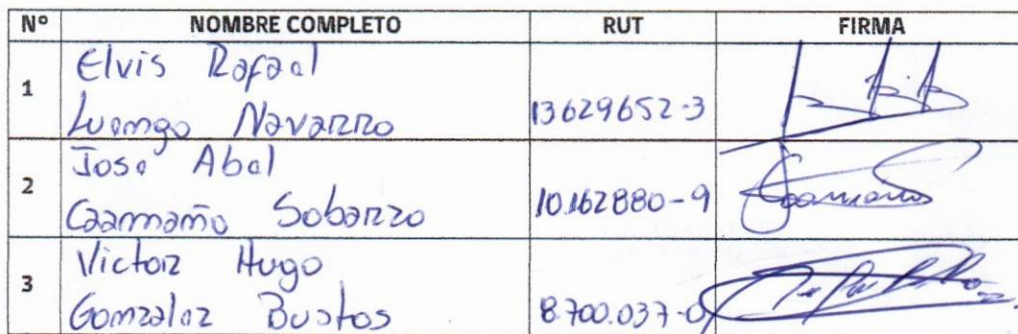 N° NOMBRE COMPLETO RUT FIRMA
Elvis Rafael
1
Luengo Navarro 13629652-3
Jose Abel
2
Caamaño Sobarzo 10.162880-9 Caamaño
Victor Hugo
3
Gonzalez Bustos 8.700.037-0